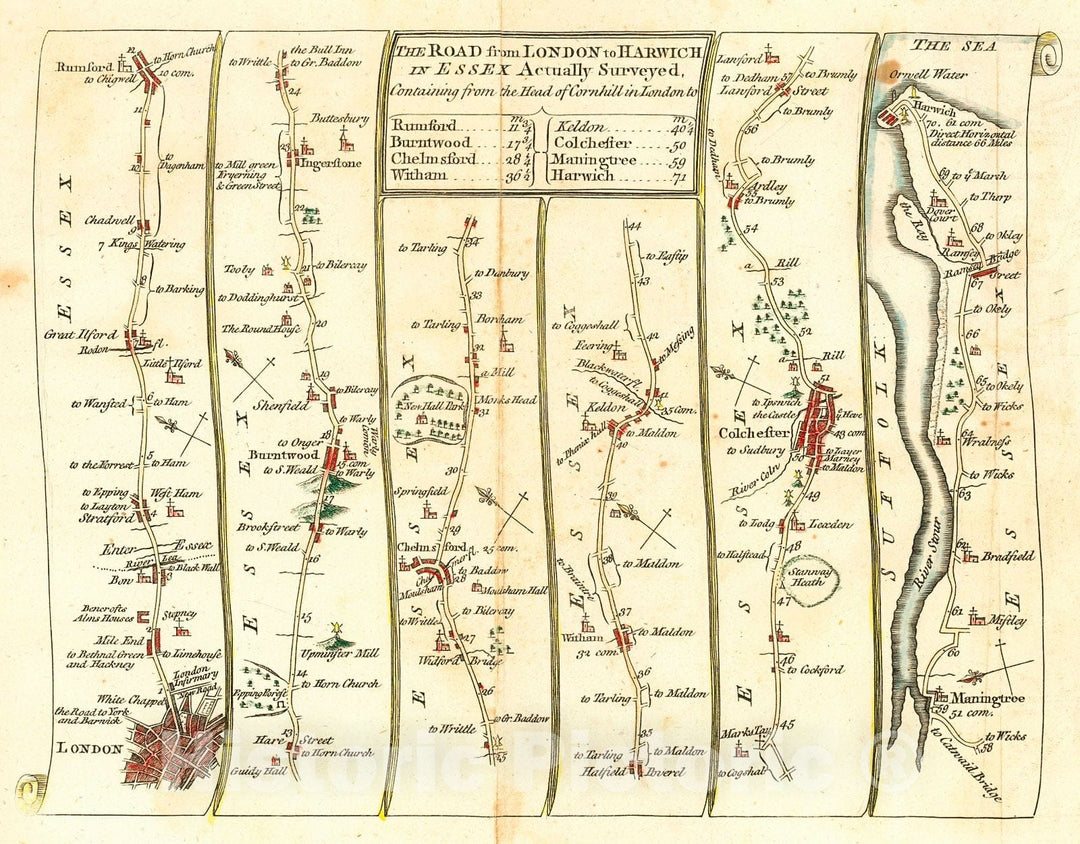 THE ROAD from LONDON to HARWICH
IN ESSEX Actually Surveyed,
Containing from the Head of Cornhill in London to
m m
Rumford 11 3/4 Keldon 40 1/4
Burntwood 17 3/4 Colchester 50
Chelmsford 28 1/4 Maningtree 59
Witham 36 1/2 Harwich 71
12
to Horn Church
Rumford
to Chigwell
10 com.
11
to Dagenham
10
Chadwell
9
7 Kings Watering
8
to Barking
Great Ilford
7
Rodon fl.
Little Ilford
to Wansted
6
to Ham
to the Forrest
5
to Ham
to Epping
West Ham
to Layton
Stratford
4
Enter Essex
River Lea
to Black Wall
Bow
3
Bencrofts
Alms Houses
Stepney
2
Mile End
to Bethnal Green
and Hackney
to Limehouse
London
Infirmary
New Road
1
White Chappel
the Road to York
and Barwick
LONDON
ESSEX
the Bull Inn
to Writtle
to Gr. Baddow
24
Buttesbury
23
Ingerstone
to Mill green
Fryerning
& Green Street
22
Tooby
21
to Bilercay
to Doddinghurst
The Round House
20
19
to Bilercay
Shenfield
to Warly
Warly Common
18
to Onger
Burntwood
15 com.
to S. Weald
to Warly
17
Brookstreet
to Warly
to S. Weald
16
15
Upminster Mill
14
to Horn Church
Epping Forest
13
Hare Street
to Horn Church
Guidy Hall
ESSEX
34
to Tarling
to Dunbury
33
to Tarling
Boreham
32
a Mill
New Hall Park
Monks Head
31
30
Springfield
29
Chelmsford
25 com.
to Baddow
28
Moulsham
Moulsham Hall
to Writtle
to Bilercay
27
Widford Bridge
26
to Gr. Baddow
to Writtle
25
ESSEX
44
to Eastip
43
to Coggeshall
42
Feering
to Messing
Blackwater fl.
to Coggeshall
41
35 Com.
Keldon
to Maldon
40
39
38
to Maldon
to Braintre
37
Witham
to Maldon
32 com.
36
to Tarling
to Maldon
35
to Tarling
to Maldon
Hatfield Peverel
ESSEX
Lanford
to Brumly
to Dedham
57
Lanford
Street
to Brumly
56
to Dedham
to Brumly
Ardley
55
to Brumly
54
a Rill
53
52
a Rill
51
to Ipswich
the Castle
to Heve
Colchester
43 com.
to Sudbury
50
to Layer
Marney
to Maldon
River Coln
49
to Lodg
Lexden
to Halstead
48
Stanway
Heath
47
46
to Cockford
45
Marks Tay
to Cogshal
ESSEX
THE SEA
Orwell Water
Harwich
70. 61 com
Direct Horizontal
distance 66 Miles
69
to March
to Thorp
Dover
Court
the Ray
68
to Okley
Ramsey
Ramsey Bridge
Street
67
to Okely
66
65
to Okely
to Wicks
64
Wralness
to Wicks
63
62
Bradfield
River Stour
61
Mistley
60
Maningtree
59
51 com.
to Wicks
58
to Catwaid Bridge
SUFFOLK
ESSEX
Historic Pictoric ©